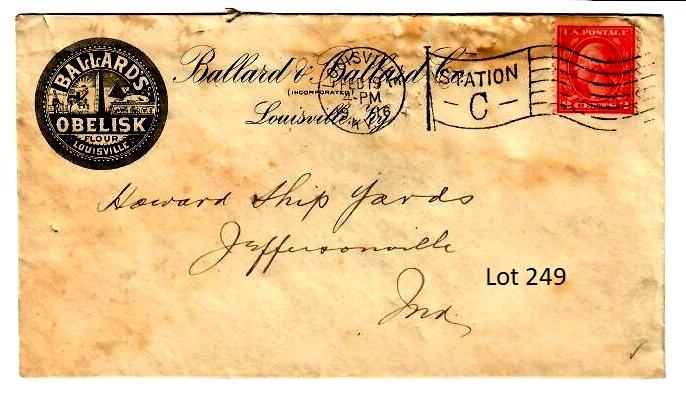 BALLARD'S
OBELISK
FLOUR
LOUISVILLE
Ballard & Ballard Co.
(INCORPORATED)
Louisville, Ky.
LOUISVILLE
FEB 19
-PM
STATION
- C -
U.S. POSTAGE
Howard Ship Yards
Jeffersonville
Ind.
Lot 249